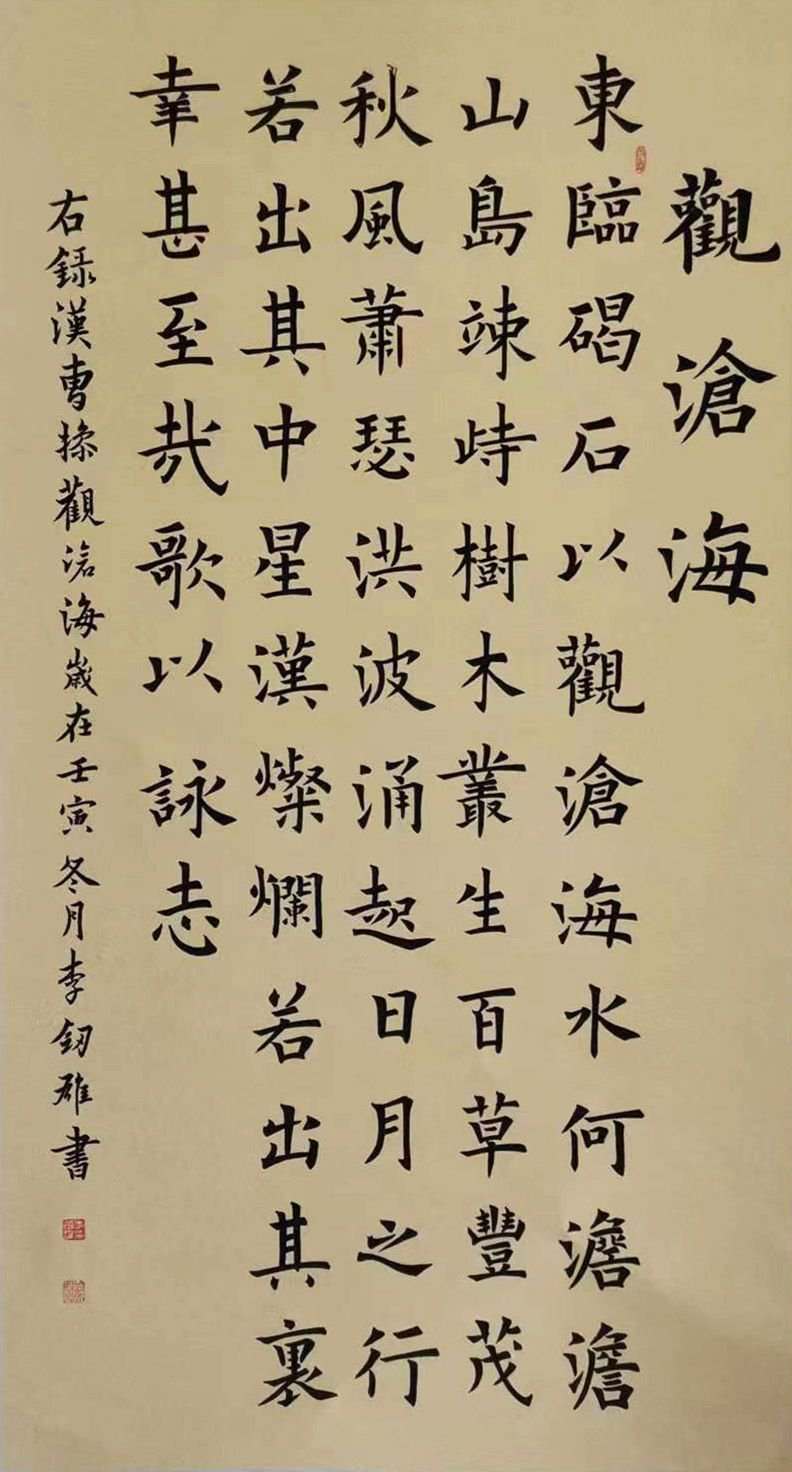 觀滄海
東臨碣石以觀滄海水何澹澹
山島竦峙樹木叢生百草豐茂
秋風蕭瑟洪波涌起日月之行
若出其中星漢燦爛若出其裏
幸甚至哉歌以詠志
右録漢曹操觀滄海歲在壬寅冬月李釰雄書